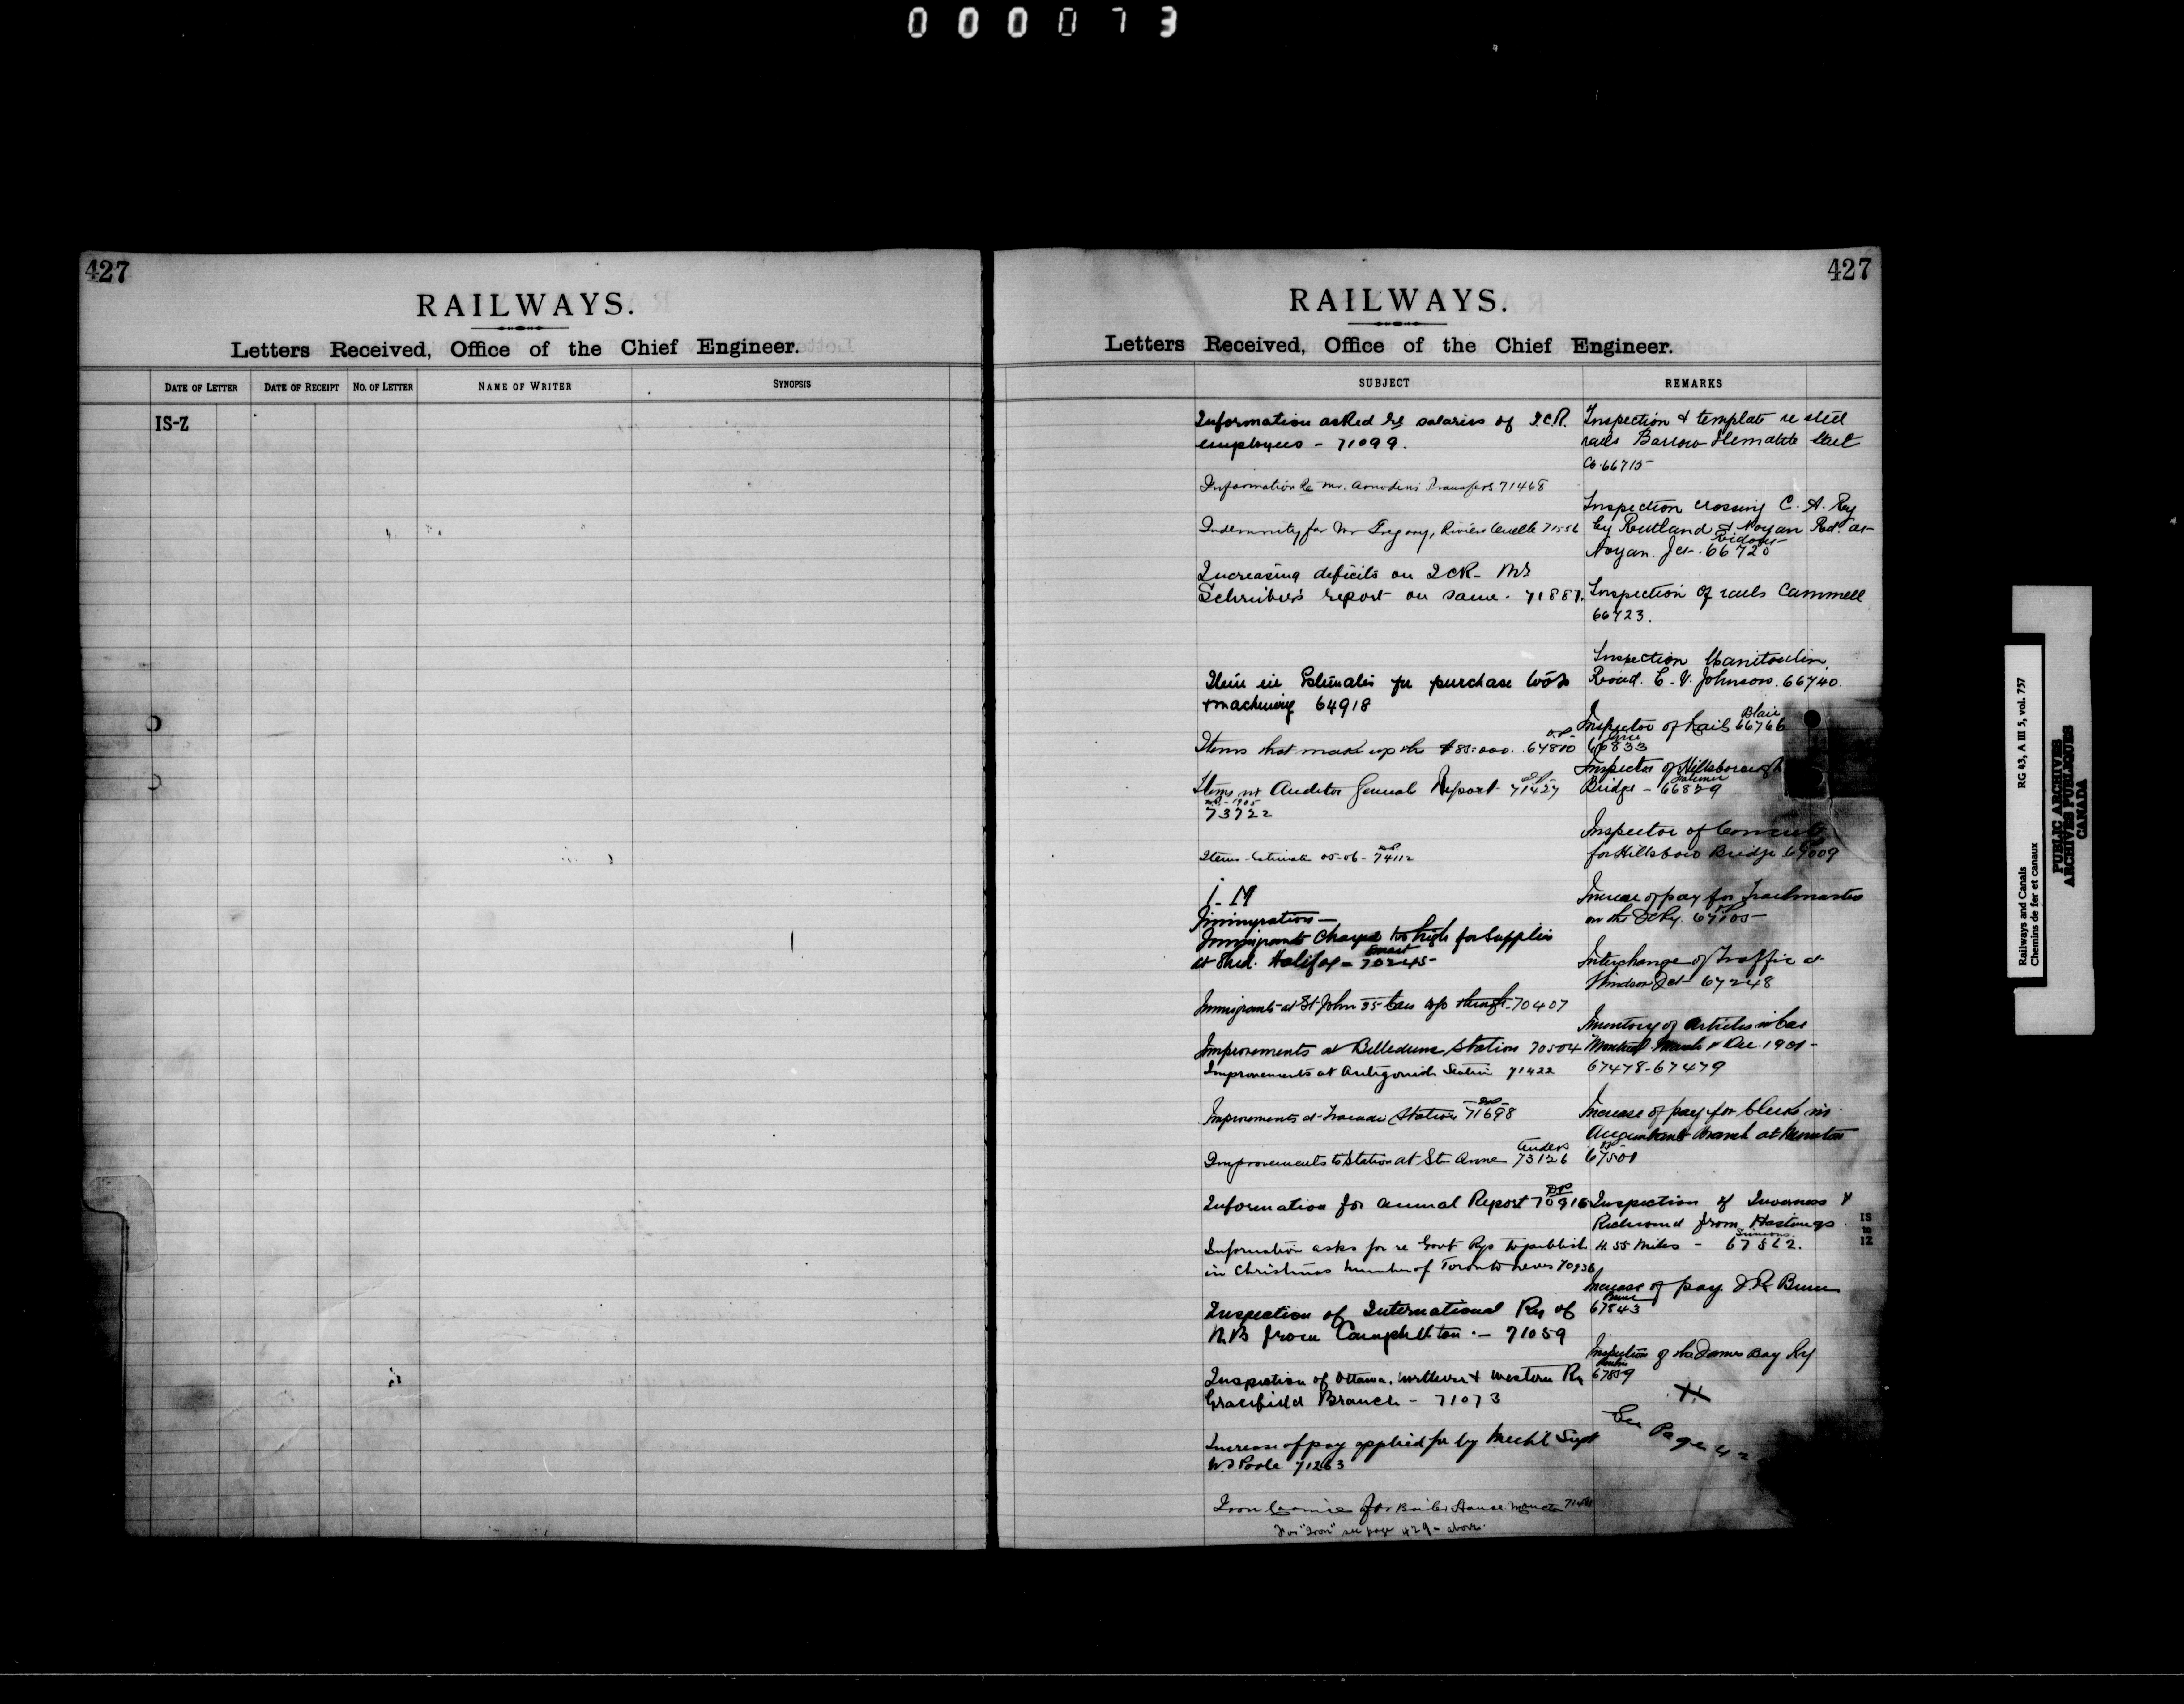 000073
427
RAILWAYS.
Letters Received, Office of the Chief Engineer.
DATE OF LETTER DATE OF RECEIPT NO. OF LETTER NAME OF WRITER SYNOPSIS
IS-Z
427
RAILWAYS.
Letters Received, Office of the Chief Engineer.
SUBJECT REMARKS
Information asked re salaries of I.C.R.
employees - 71099.
Information re Mr. 71468
Indemnity for Mr Gregory, Riviere Ouelle 71556
Increasing deficits on ICR - Mr
Schreiber's report on same. 71887.
Item in Estimates for purchase tools
& machinery 64918
Items that make up the $85.000. 64800
Items in Auditor Generals Report 71427
1905
73722
Items Estimates 05-06 - 74112
I-M
Immigration -
Immigrants charged too high for Supplies
at Shed. Halifax - 70245
Immigrants at St John 35 Cars 70407
Improvements at Belledune Station 70504
Improvements at Antigonish Station 71422
Improvements at Tracadie Station 71698
Improvements to Station at Ste Anne 73126
Information for Annual Report 70916
Information asks for re Govt Rys to publish
in Christmas Number of Toronto News 70936
Inspection of International Ry of
N.B from Campbellton - 71059
Inspection of Ottawa, Northern & Western Ry
Gracefield Branch - 71073
Increase of pay applied for by Mechl Supt
W.S Poole 71263
Iron for Boiler House Moncton
For "Iron" see page 429 - above.
Inspection & template re steel
rails Barrow Hematite Steel
Co. 66715
Inspection crossing C. A. Ry
by Rutland & Noyan Rd. at
Noyan Jct. 66720
Inspection of rails Cammell
66723.
Inspection Manitoulin
Road. E. V. Johnson. 66740.
Blair
Inspector of Rails 66766
66833
Inspector of Hillsborough
Bridge - 66829
Inspector of Concrete
for Hillsboro Bridge 67009
Increase of pay for Trackmasters
on the ICRy. 67105
Interchange of Traffic at
Windsor Jct 67248
Inventory of Articles in Car
Montreal March & Dec. 1901 -
67478-67479
Increase of pay for Clerks in
Accountants Branch at Moncton
67501
Inspection of Inverness &
Richmond from Hastings
4.55 Miles - 67562.
IS
to
IZ
Increase of pay
67843
Inspection of Ry
67859
See Page
Railways and Canals RG 43, A III 5, vol. 757
Chemins de fer et canaux
PUBLIC ARCHIVES
ARCHIVES PUBLIQUES
CANADA